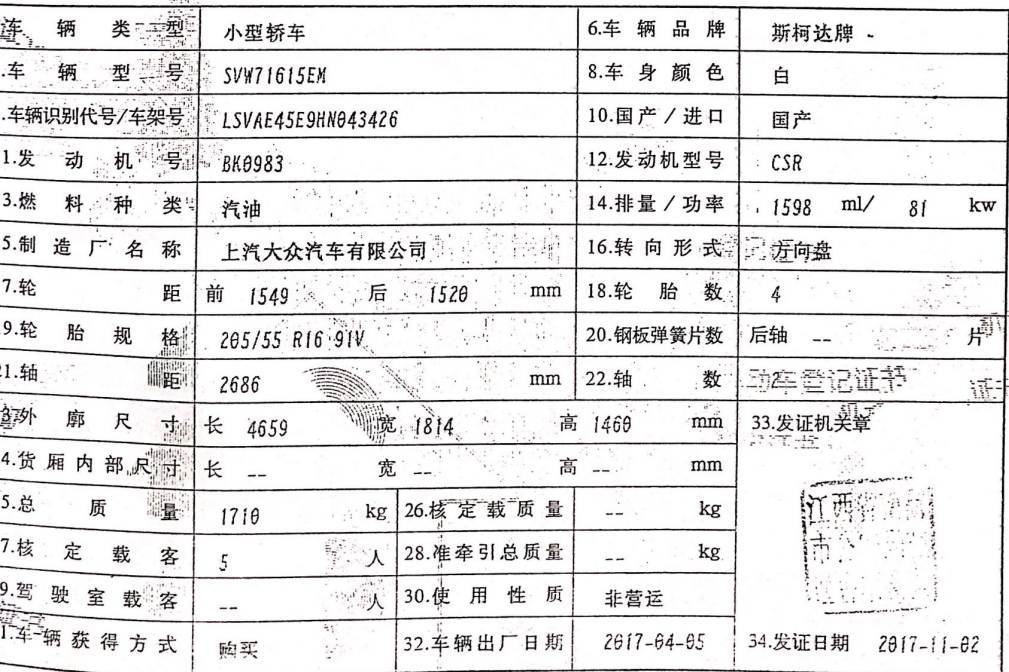 车辆类型 小型轿车 6.车辆品牌 斯柯达牌
.车辆型号 SVW71615EM 8.车身颜色 白
.车辆识别代号/车架号 LSVAE45E9HN043426 10.国产/进口 国产
1.发动机号 BK0983 12.发动机型号 CSR
3.燃料种类 汽油 14.排量/功率 1598 ml/ 81 kw
5.制造厂名称 上汽大众汽车有限公司 16.转向形式 方向盘
7.轮距 前 1549 后 1520 mm 18.轮胎数 4
9.轮胎规格 205/55 R16 91V 20.钢板弹簧片数 后轴 -- 片
21.轴距 2686 mm 22.轴数 2
外廓尺寸 长 4659 宽 1814 高 1460 mm 33.发证机关章
4.货厢内部尺寸 长 -- 宽 -- 高 -- mm
5.总质量 1710 kg 26.核定载质量 -- kg
7.核定载客 5 人 28.准牵引总质量 -- kg
9.驾驶室载客 -- 人 30.使用性质 非营运
1.车辆获得方式 购买 32.车辆出厂日期 2017-04-05 34.发证日期 2017-11-02
动车登记证书
江西省
市